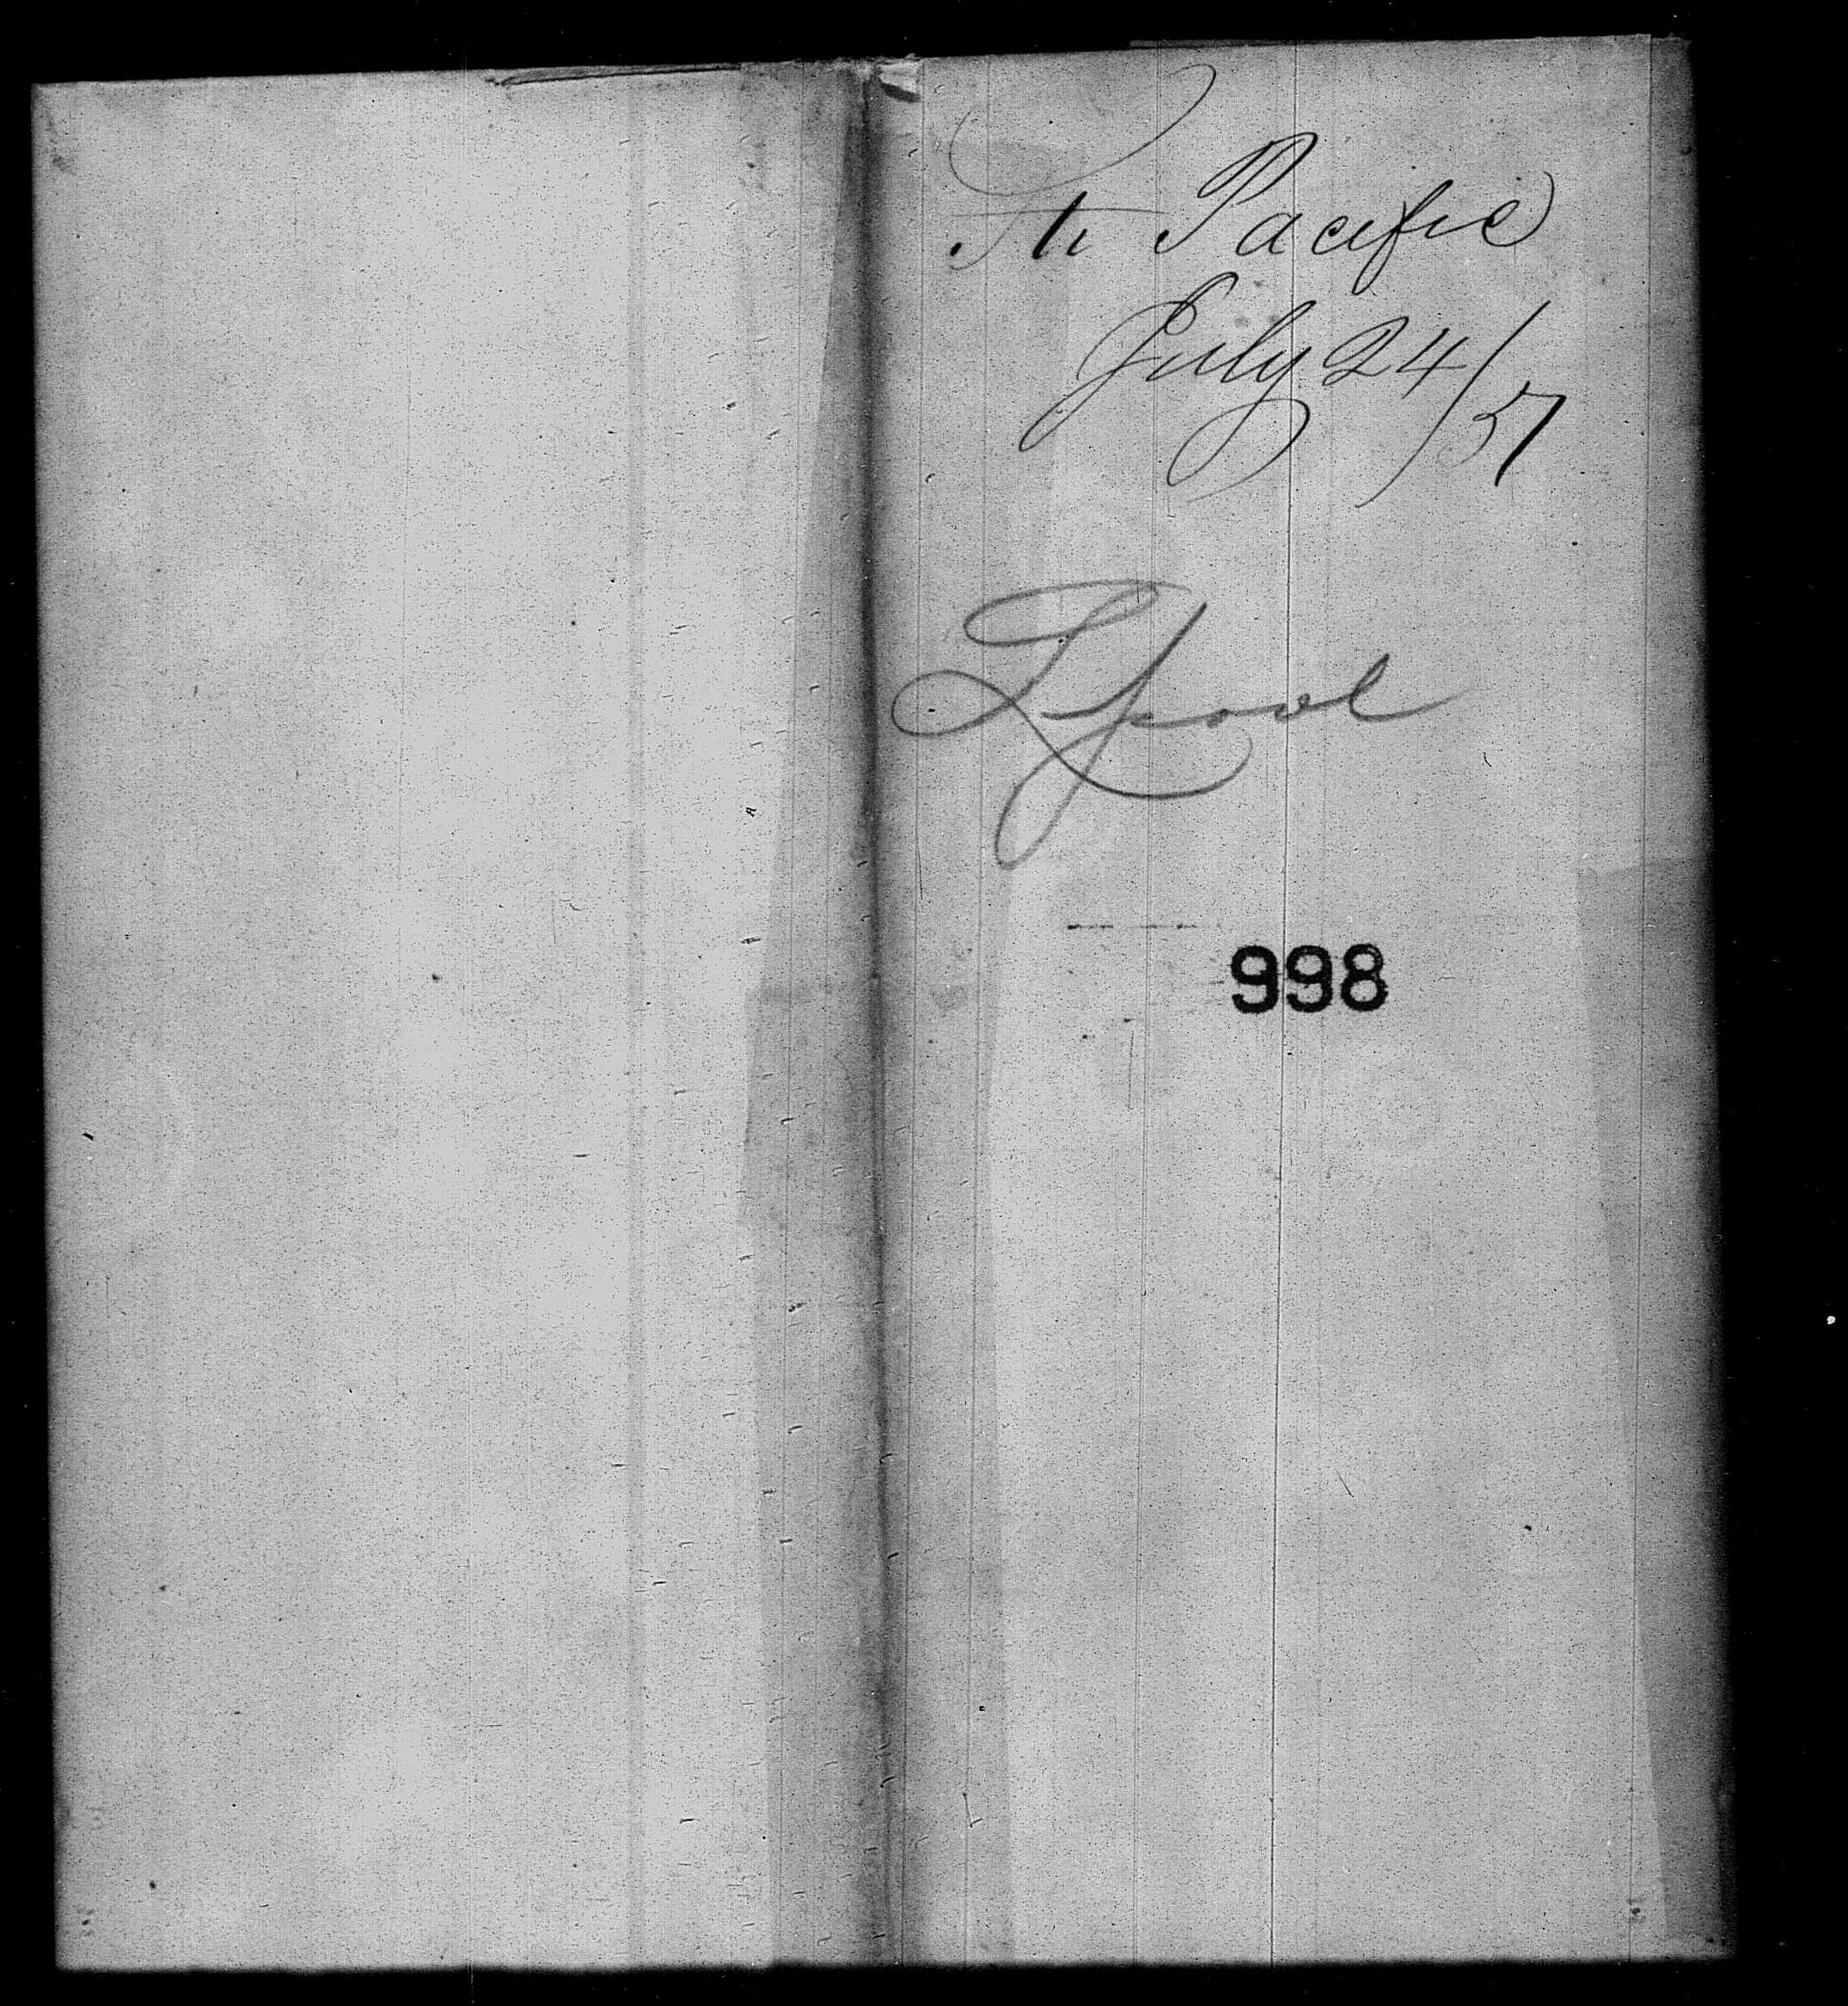 Str Pacific
July 24/57
Lpool
998